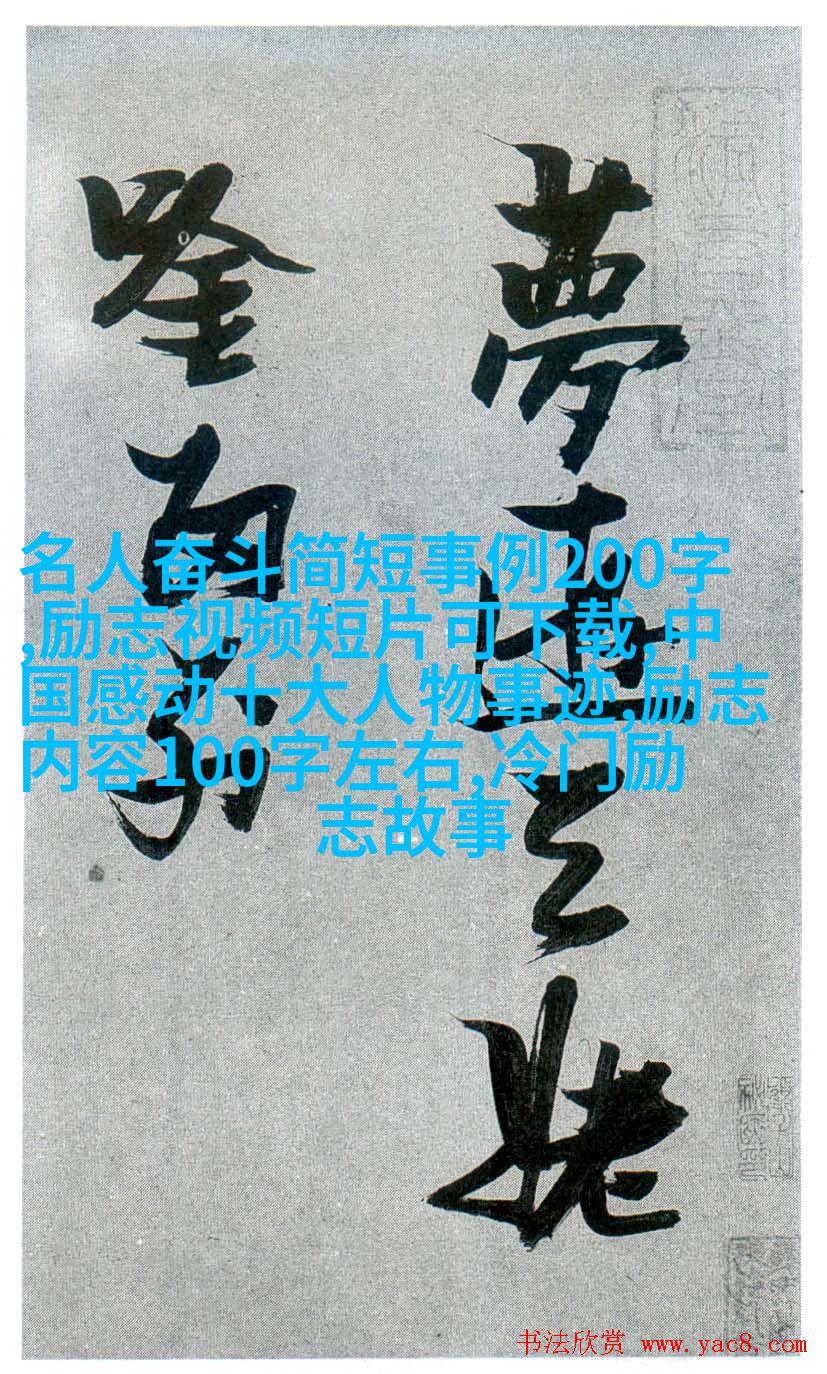 夢遊天姥
唫
名人奋斗简短事例200字
,励志视频短片可下载,中
国感动十大人物事迹,励志
内容100字左右,冷门励
志故事
书法欣赏 www.yac8.com